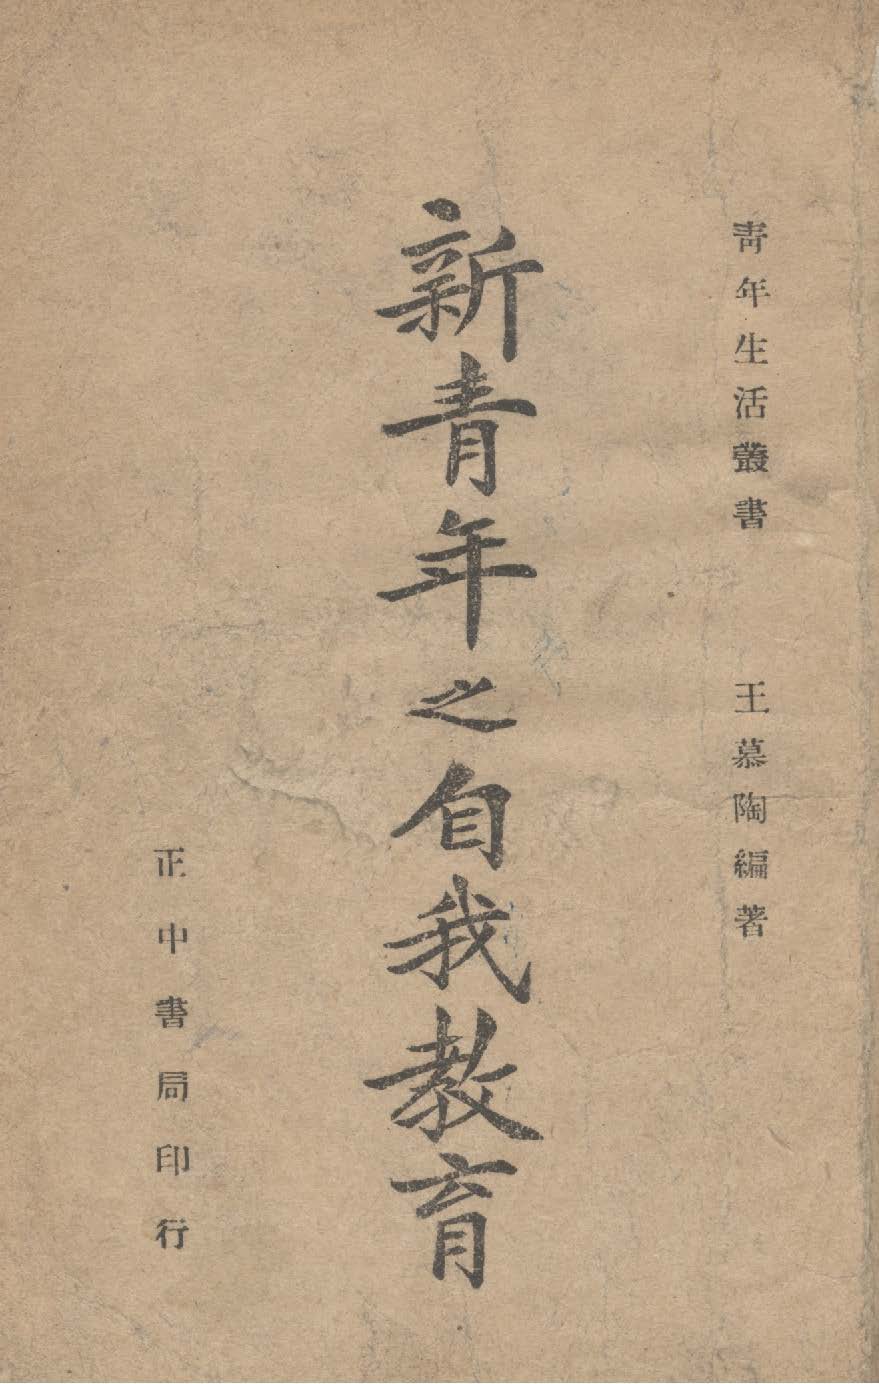 青年生活叢書
王慕陶編著
新青年之自我教育
正中書局印行